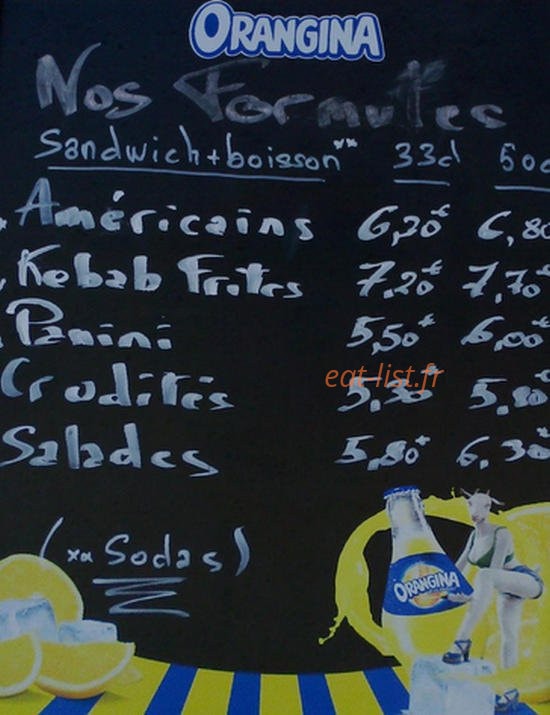 ORANGINA
Nos Formules
Sandwich + boisson** 33cl 50c
Américains 6,30€ 6,80
Kebab Frites 7,20€ 7,70€
Panini 5,50€ 6,00€
Crudités 5,30€ 5,80€
Salades 5,80€ 6,30€
eat-list.fr
(** Sodas)
ORANGINA